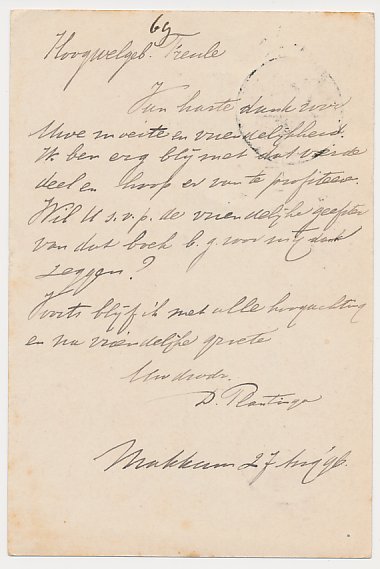 69
Hoogwelgeb. Freule
Van harte dank voor
Uwe moeite en vriendelijkheid.
Ik ben erg blij met dat vierde
deel en hoop er van te profiteeren.
Wil U s.v.p. de vriendelijke geefster
van dat boek b.g. voor mij dank
zeggen?
Voorts blijf ik met alle hoogachting
en na vriendelijke groete
Uw dwdr.
D. Plantinga
Makkum 27 Aug 96.